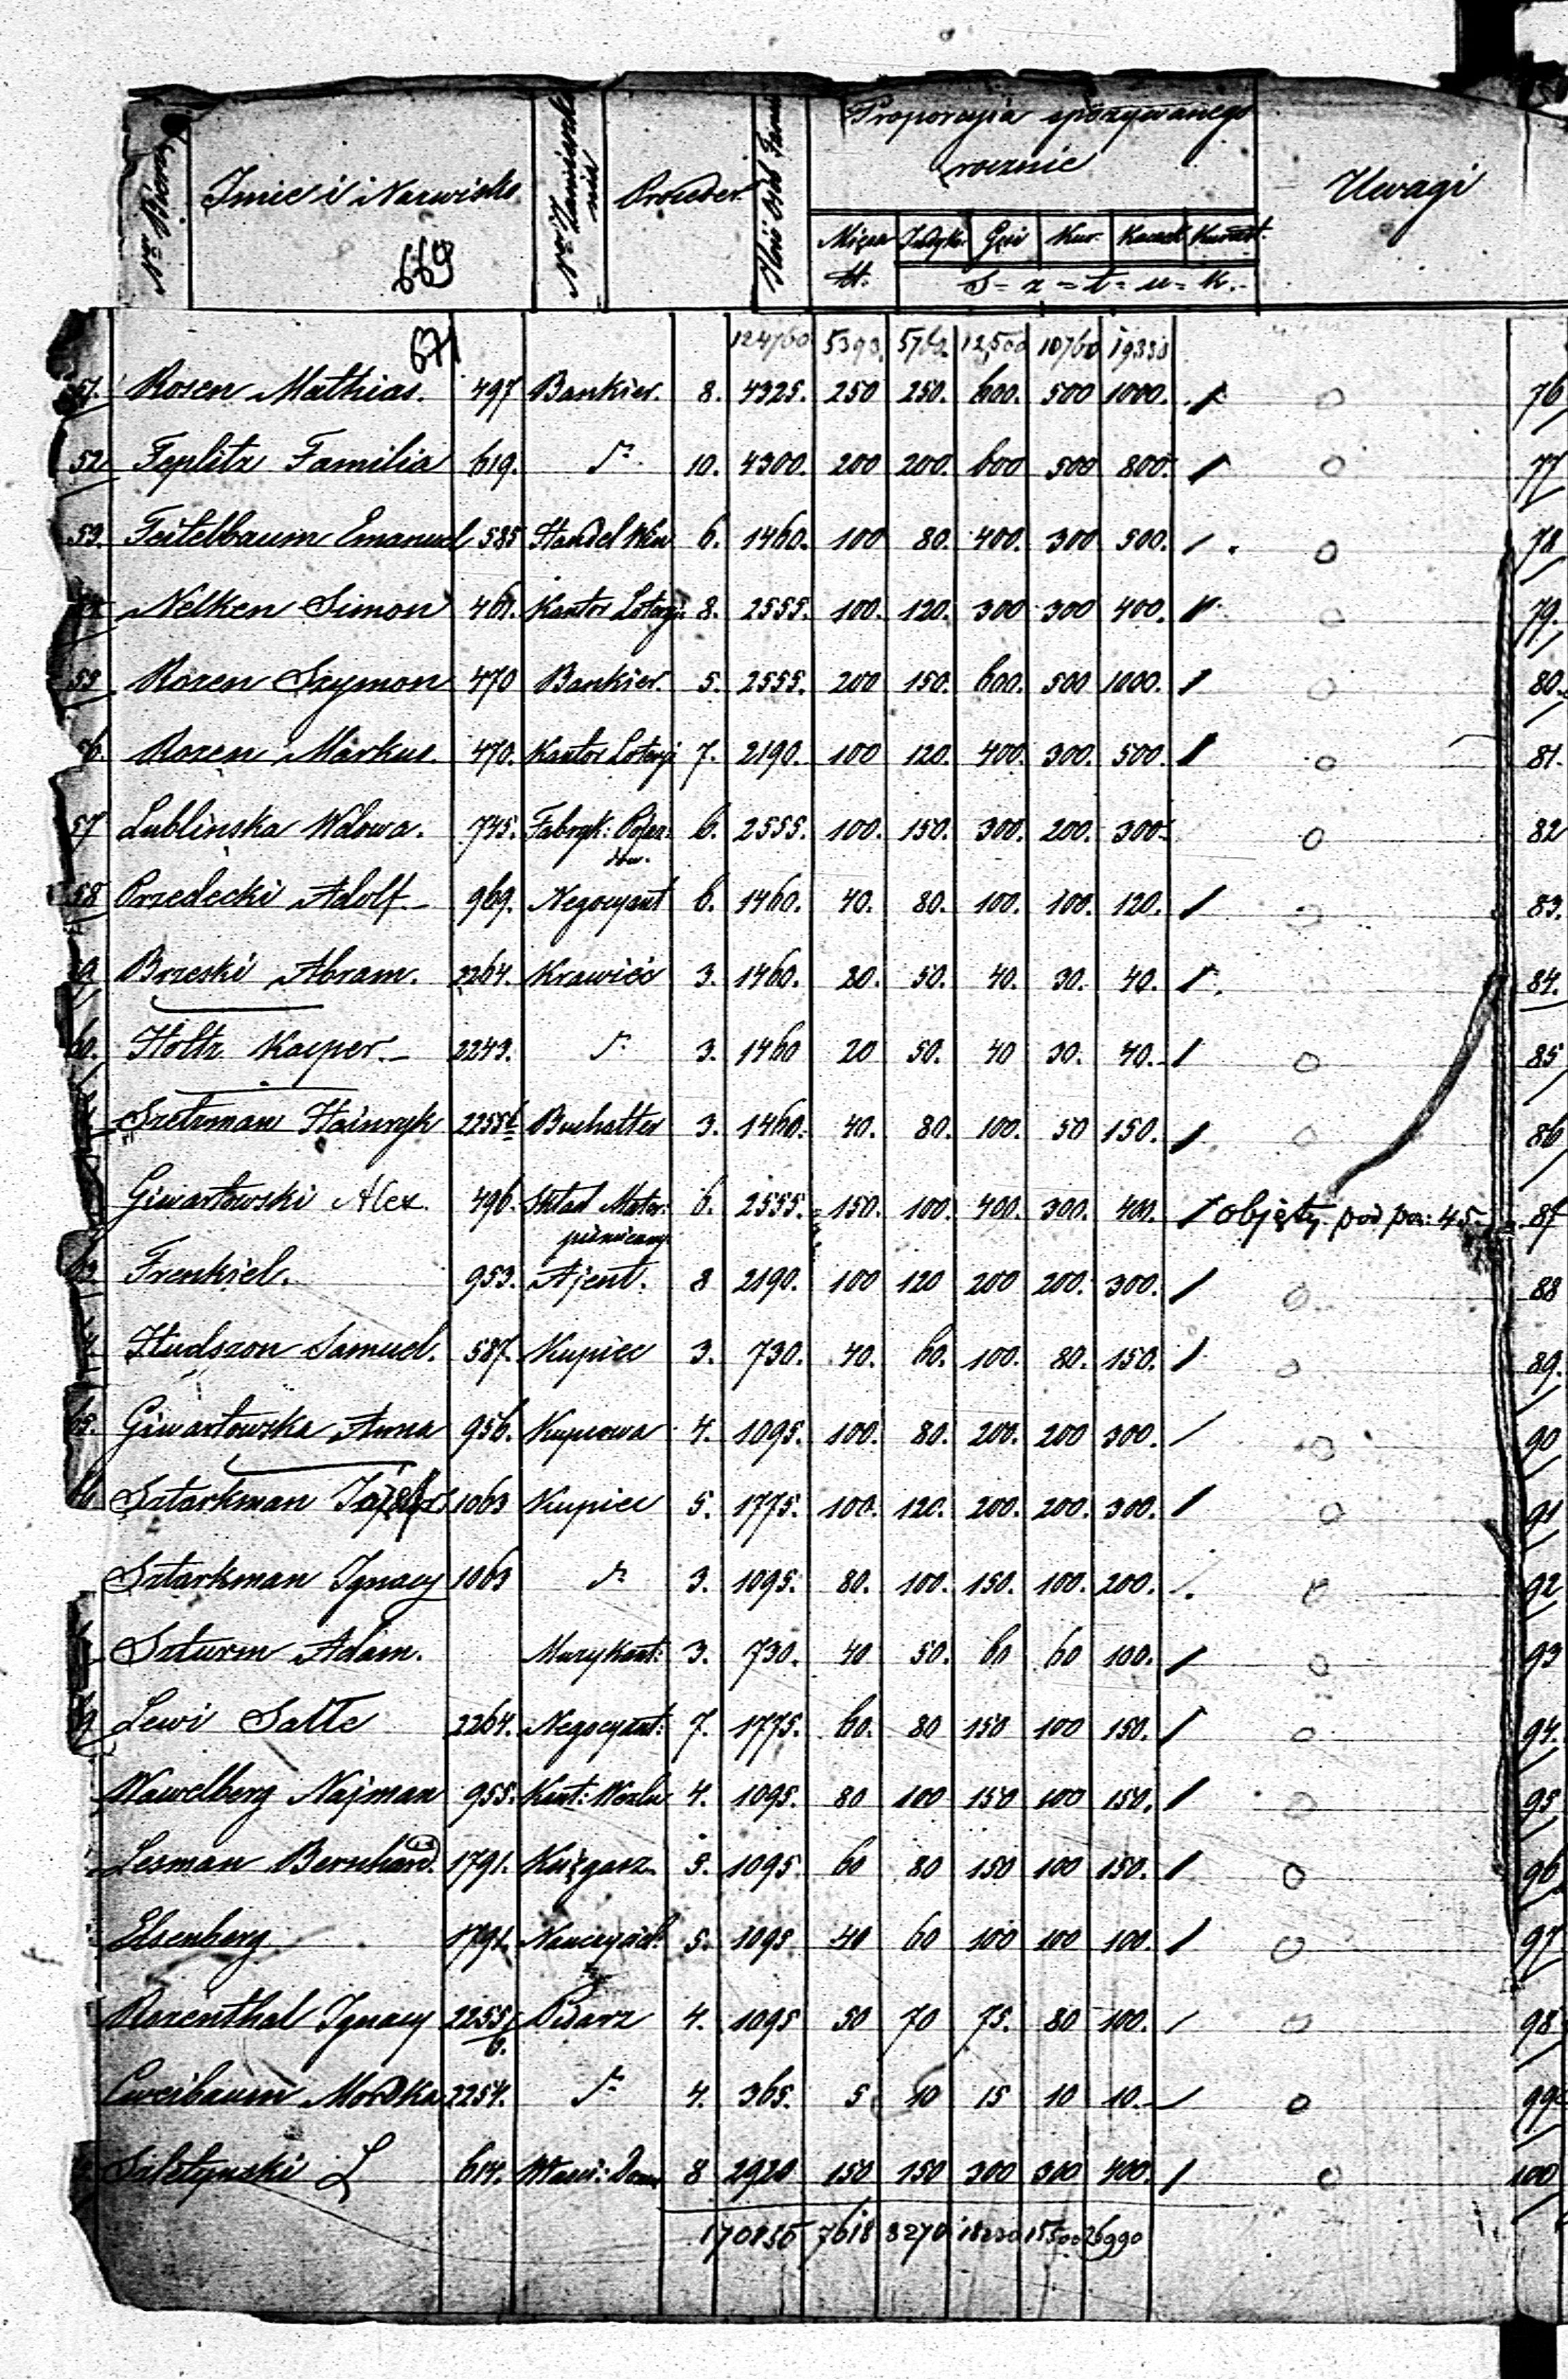 Nro Bierz.
Imie i Nazwisko
Nro Zamieszkania
Proceder
Ilość Osób Famil
Proporcyia spożywanego rocznie
Uwagi
Mięsa Indyk. Gęsi Kur. Kaczek Kurcząt.
tt. S = z = t = u = k.
669
671
124760 5393. 5762 12,500 10760 19330
51. Rosen Mathias. 497 Bankier. 8. 4325. 250 250. 600. 500 1000. 76
52 Teplitz Familia 619. dº 10. 4300. 200 200. 600 500 800. 77
53. Feitelbaum Emanuel 585 Handel Win 6. 1460. 100 80. 400. 300 500. 78
Nelken Simon 461. Kantor Loteryi 8. 2555. 100. 120. 300 300 400. 79.
55 Rozen Szymon 470 Bankier. 5. 2555. 200 150. 600. 500 1000. 80.
56. Rozen Markus. 470. Kantor Loteryi 7. 2190. 100 120. 400. 300. 500. 81.
57 Lublinska Wdowa. 745. Fabryk: Pojaz-
dów. 6. 2555. 100. 150. 300. 200. 300. 82
58 Przedecki Adolf. 969. Negocyant 6. 1460. 40. 80. 100. 100. 120. 83.
Brzeski Abram. 2264. Krawiéc 3. 1460. 20. 50. 40. 30. 40. 84.
60. Holtz Kacper. 2243. dº 3. 1460 20 50. 40 30. 40. 85
Szetzman Hainryk 2255b Buchalter 3. 1460. 40. 80. 100. 50 150. 86
Giwartowski Alex. 496. Skład Mater:
piśmienny 6. 2555. 150. 100. 400. 300. 400. objęty pod poz: 45. 87
63 Frenkiel. 953. Ajent. 8 2190. 100 120 200 200. 300. 88
Hudszon Samuel. 587. Kupiec 3. 730. 40. 60. 100. 80. 150. 89.
65. Giwartowska Anna 956. Kupcowa 4. 1095. 100. 80. 200. 200 300. 90
Sztarkman Józef 1063 Kupiec 5. 1775. 100. 120. 200. 200. 300. 91
Sztarkman Ignacy 1063 dº 3. 1095. 80. 100. 150. 100. 200. 92
Szturm Adam. Muzykant: 3. 730. 40 50. 60 60 100. 93
Lewi Salle 2264. Negocyant: 7. 1775. 60. 80 150 100 150. 94.
Wawelberg Najman 955. Kant: Wexlu 4. 1095. 80 100 150 100 150. 95
Lesman Bernhard. 1791. Księgarz 5. 1095. 60 80 150 100 150. 96
Elsenberg 1791. Nauczyciel: 5. 1095 40 60 100 100 100. 97
Rozenthal Ignacy 2255/b. Pisarz 4. 1095 50 70 75. 80 100. 98
Cweibaum Mordka 2254. dº 4. 365. 5 10 15 10 10. 99
L 614. Właśc: Domu 8 2920 150 150 300 300 400. 100
170856 7618 8270 18220 15500 26990